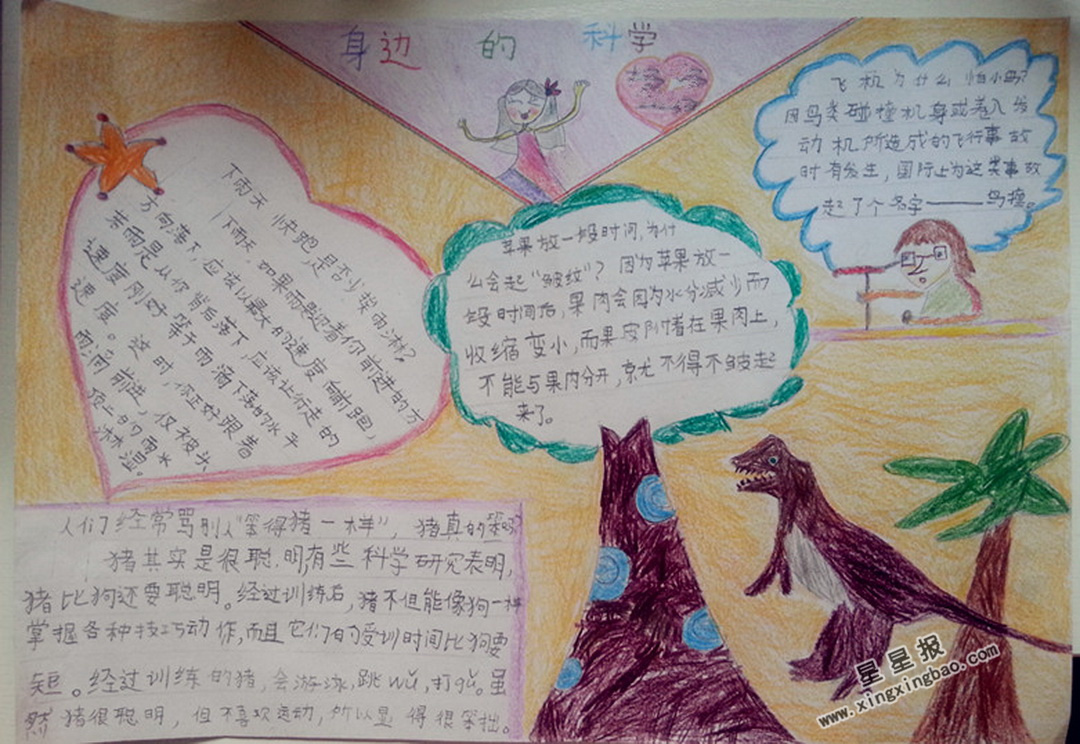 身边的科学
下雨天 快跑,是否少挨雨淋?
下雨天,如果雨是迎着你前进的方
方向落下,应该以最大的速度向前跑,
若雨是从你背后落下,应该让行走的
速度刚好等于雨滴下落的水平
速度。这时,你正好跟着
雨滴前进,仅被头
顶上的雨水
淋湿。
苹果放一段时间,为什
么会起“皱纹”?因为苹果放一
段时间后,果肉会因为水分减少而
收缩变小,而果皮附者在果肉上,
不能与果肉分开,就不得不皱起
来了。
飞机为什么怕小鸟?
因鸟类碰撞机身或卷入发
动机所造成的飞行事故
时有发生,国际上为这类事故
起了个名字——鸟撞。
人们经常骂别人“笨得猪一样”,猪真的笨吗?
猪其实是很聪明,有些科学研究表明,
猪比狗还要聪明。经过训练后,猪不但能像狗一样
掌握各种技巧动作,而且它们的受训时间比狗要
短。经过训练的猪,会游泳,跳wǔ,打gǔ。虽
然猪很聪明,但不喜欢运动,所以显得很笨拙。
星星报
www.xingxingbao.com